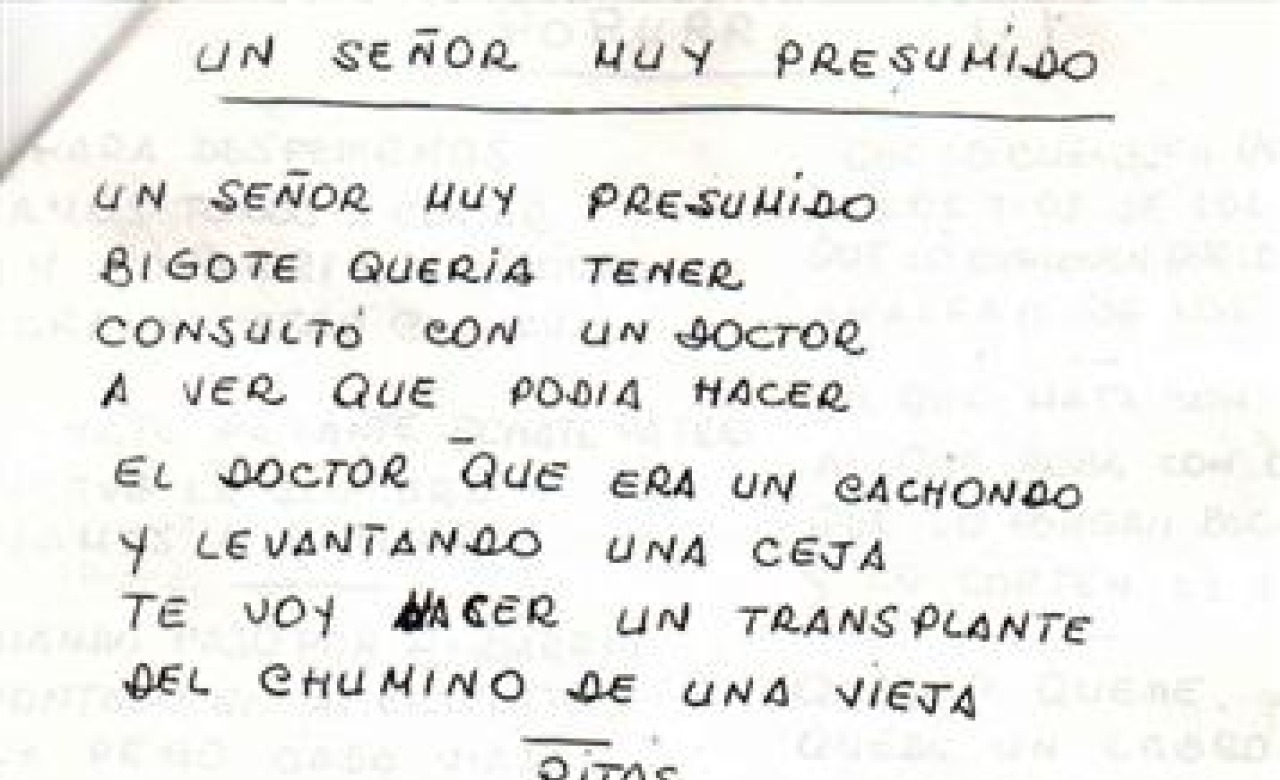 UN SEÑOR MUY PRESUMIDO
UN SEÑOR MUY PRESUMIDO
BIGOTE QUERIA TENER
CONSULTÓ CON UN DOCTOR
A VER QUE PODIA HACER
EL DOCTOR QUE ERA UN CACHONDO
Y LEVANTANDO UNA CEJA
TE VOY HACER UN TRANSPLANTE
DEL CHUMINO DE UNA VIEJA